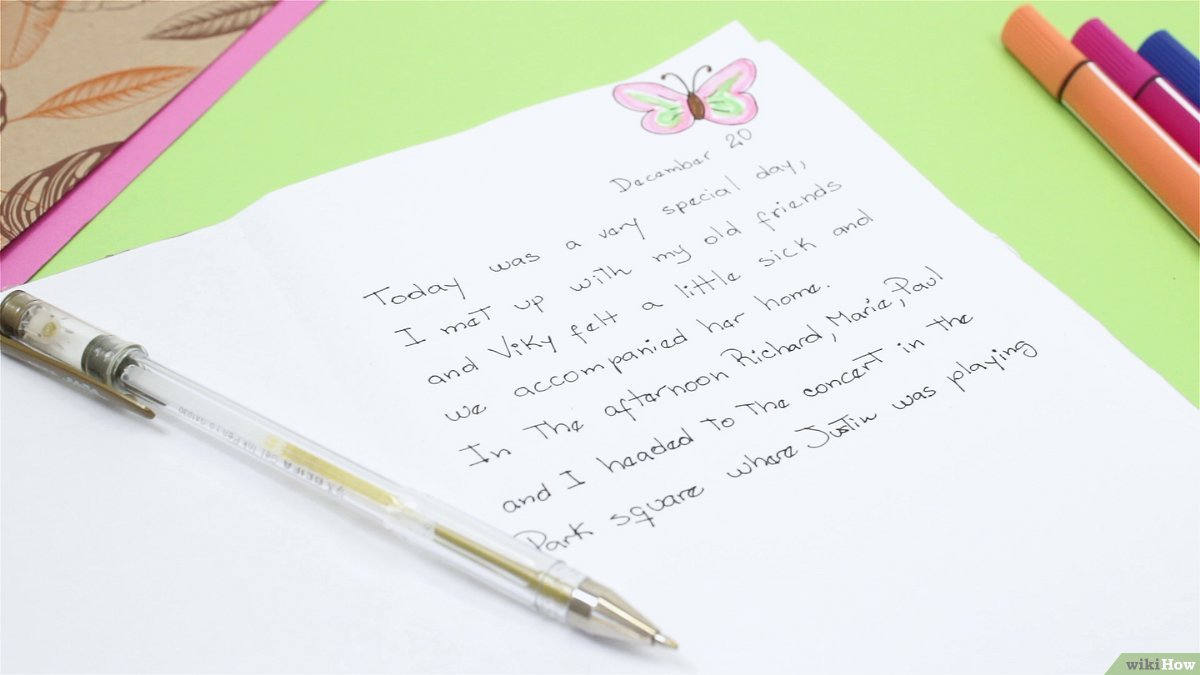 December 20
Today was a very special day,
I met up with my old friends
and Viky felt a little sick and
we accompanied her home.
In the afternoon Richard, Marie, Paul
and I headed to the concert in the
Park square where Justin was playing
wikiHow